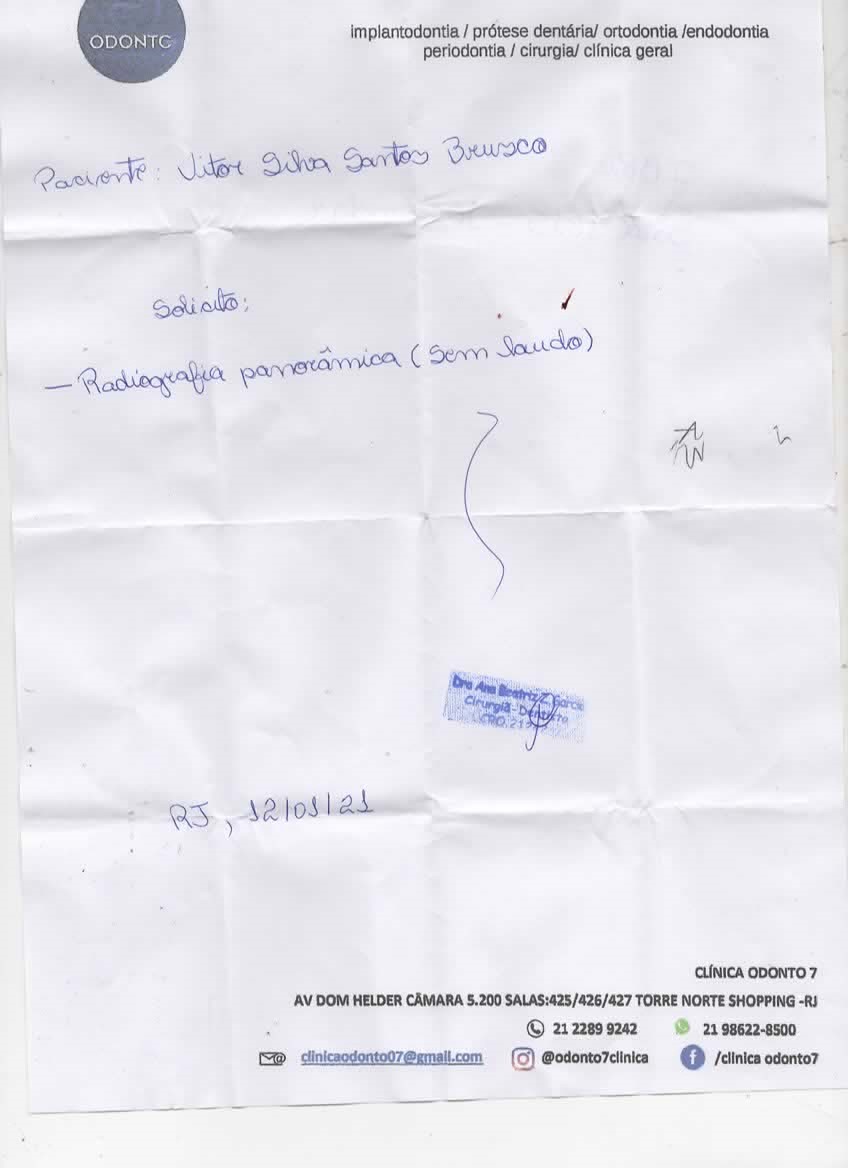 ODONTC
implantodontia / prótese dentária/ ortodontia /endodontia
periodontia / cirurgia/ clínica geral
Paciente: Vitor Silva Santos Brusco
Solicito:
— Radiografia panorâmica (Sem laudo)
Dra Ana Beatriz Z. Garcia
Cirurgiã-Dentista
CRO
RJ, 12/01/21
CLÍNICA ODONTO 7
AV DOM HELDER CÂMARA 5.200 SALAS:425/426/427 TORRE NORTE SHOPPING -RJ
21 2289 9242 21 98622-8500
clinicaodonto07@gmail.com @odonto7clinica /clinica odonto7